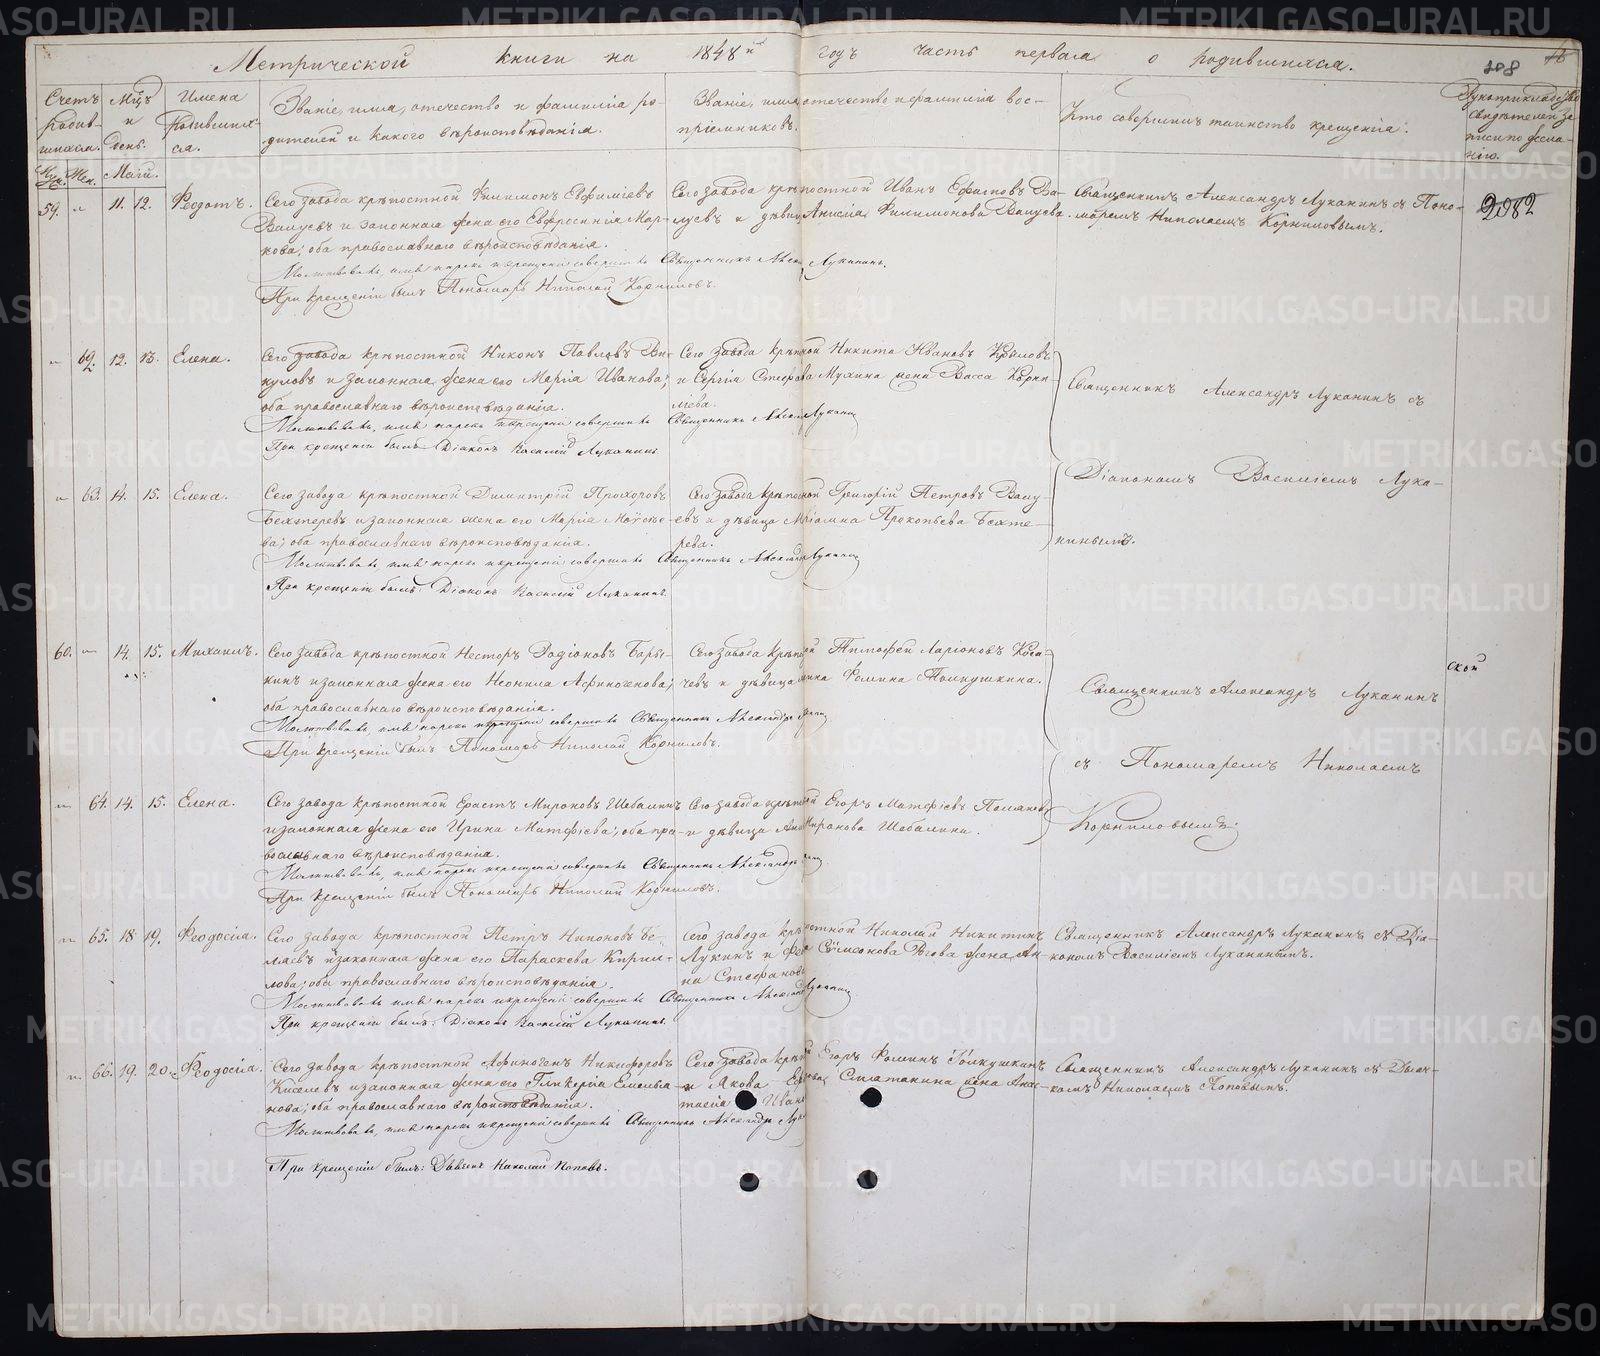 Метрической книги на 1848й годъ часть первая о родившихся.
208
Счетъ родив-
шихся.
Мцъ и день.
Имена родившихся.
Званіе, имя, отечество и фамилія ро-
дителей и какого вѣроисповѣданія.
Званіе, имя, отечество и фамилія вос-
пріемниковъ.
Кто совершилъ таинство крещенія.
Рукоприкладство
свидѣтелей за-
писи по жела-
нію.
Муж. Жен. Маій.
59. " 11. 12. Феодотъ.
Сего завода крѣпостной Филимонъ Евфиміевъ
и законная жена его Евфросинія Мар-
кова; оба православнаго вѣроисповѣданія.
Молитвовалъ, имя нарекъ и крещеніе совершилъ Священникъ Алек. Луканинъ.
При крещеніи былъ Пономарь Николай Корниловъ.
Сего завода крѣпостной Иванъ Ефимовъ Ва-
луевъ и дѣвица Анисія Филимонова Валуева.
Священникъ Александръ Луканинъ съ Поно-
маремъ Николаемъ Корниловымъ.
2982
" 62. 12. 13. Елена.
Сего завода крѣпостной Никонъ Павловъ Ви-
куловъ и законная жена его Марія Иванова;
оба православнаго вѣроисповѣданія.
Молитвовалъ, имя нарекъ и крещеніе совершилъ Священникъ Алексан. Луканин
При крещеніи былъ Діаконъ Василій Луканинъ.
Сего завода крѣпной Никита Ивановъ Крыловъ
и Сергія Стефанова Мухина жена Васса Корни-
ліева.
Священникъ Александръ Луканинъ съ
Діакономъ Василіемъ Лука-
нинымъ.
" 63. 14. 15. Елена.
Сего завода крѣпостной Димитрій Прохоровъ
Бехтеревъ и законная жена его Марія Моѵсее-
ва; оба православнаго вѣроисповѣданія.
Молитвовалъ, имя нарекъ и крещеніе совершилъ Священникъ Александръ Луканин
При крещеніи былъ: Діаконъ Василій Луканинъ.
Сего завода крѣпостной Григорій Петровъ Валу-
евъ и дѣвица Маріамна Прокопьева Бехте-
рева.
60. " 14. 15. Михаилъ.
Сего завода крѣпостной Несторъ Родіоновъ Бары-
кинъ и законная жена его Неонила Афиногенова;
оба православнаго вѣроисповѣданія.
Молитвовалъ, имя нарекъ и крещеніе совершилъ Священникъ Александръ
При крещеніи былъ Пономарь Николай Корниловъ.
Сего завода крѣпной Тимофей Ларіоновъ Коса-
чевъ и дѣвица Фомина Толкушкина.
Священникъ Александръ Луканинъ
съ Пономаремъ Николаемъ
Корниловымъ.
ской
" 64. 14. 15. Елена.
Сего завода крѣпостной Ерастъ Мироновъ Шебалинъ
и законная жена его Ирина Матфіева; оба пра-
вославнаго вѣроисповѣданія.
Молитвовалъ, имя нарекъ и крещеніе совершилъ Священникъ Александръ
При крещеніи былъ Пономарь Николай Корниловъ.
Сего завода крѣпной Егоръ Матфіевъ Поляковъ
и дѣвица Анна Миронова Шебалина.
" 65. 18. 19. Феодосія.
Сего завода крѣпостной Петръ Никоновъ Бе-
ляевъ и законная жена его Параскева Кирил-
лова; оба православнаго вѣроисповѣданія.
Молитвовалъ, имя нарекъ и крещеніе совершилъ Священникъ Александръ Луканин
При крещеніи былъ: Діаконъ Василій Луканинъ.
Сего завода крѣпостной Николай Никитинъ
Лукинъ и Симеонова жена Ан-
на Стефанова
Священникъ Александръ Луканинъ съ Діа-
кономъ Василіемъ Луканинымъ.
" 66. 19. 20. Феодосія.
Сего завода крѣпостной Афиногенъ Никифоровъ
Киселевъ и законная жена его Гликерія Емелья-
нова; оба православнаго вѣроисповѣданія.
Молитвовалъ, имя нарекъ и крещеніе совершилъ Священникъ Александръ Лук
При крещеніи былъ: Дьячекъ Николай Поповъ.
Сего завода крѣпной Егоръ Фоминъ Толкушкинъ
и Якова Сметанина жена Анас-
тасія Иван
Священникъ Александръ Луканинъ съ Дьяч-
комъ Николаемъ Поповымъ.
METRIKI.GASO-URAL.RU